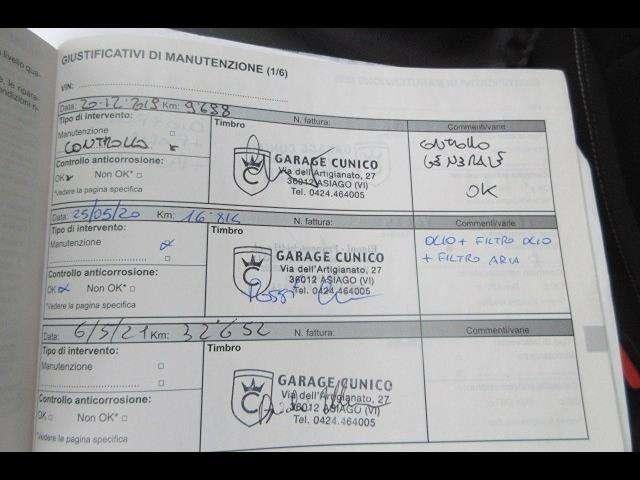 GIUSTIFICATIVI DI MANUTENZIONE (1/6)
VIN:
Data: 20.12.2019 Km: 9698
Tipo di intervento:
Manutenzione
CONTROLLO
Controllo anticorrosione:
OK Non OK*
*Vedere la pagina specifica
Timbro N. fattura:
GARAGE CUNICO
Via dell'Artigianato, 27
36012 ASIAGO (VI)
Tel. 0424.464005
Commenti/varie
CONTROLLO
GENERALE
OK
Data: 25/05/20 Km: 16.816
Tipo di intervento:
Manutenzione
Controllo anticorrosione:
OK Non OK*
*Vedere la pagina specifica
Timbro N. fattura:
GARAGE CUNICO
Via dell'Artigianato, 27
36012 ASIAGO (VI)
Tel. 0424.464005
Commenti/varie
OLIO + FILTRO OLIO
+ FILTRO ARIA
Data: 6/5/21 Km: 32652
Tipo di intervento:
Manutenzione
Controllo anticorrosione:
OK Non OK*
*Vedere la pagina specifica
Timbro N. fattura:
GARAGE CUNICO
Via dell'Artigianato, 27
36012 ASIAGO (VI)
Tel. 0424.464005
Commenti/varie